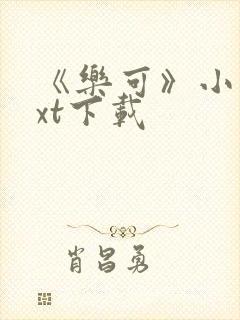 《樂可》小
xt下載
肖昌勇